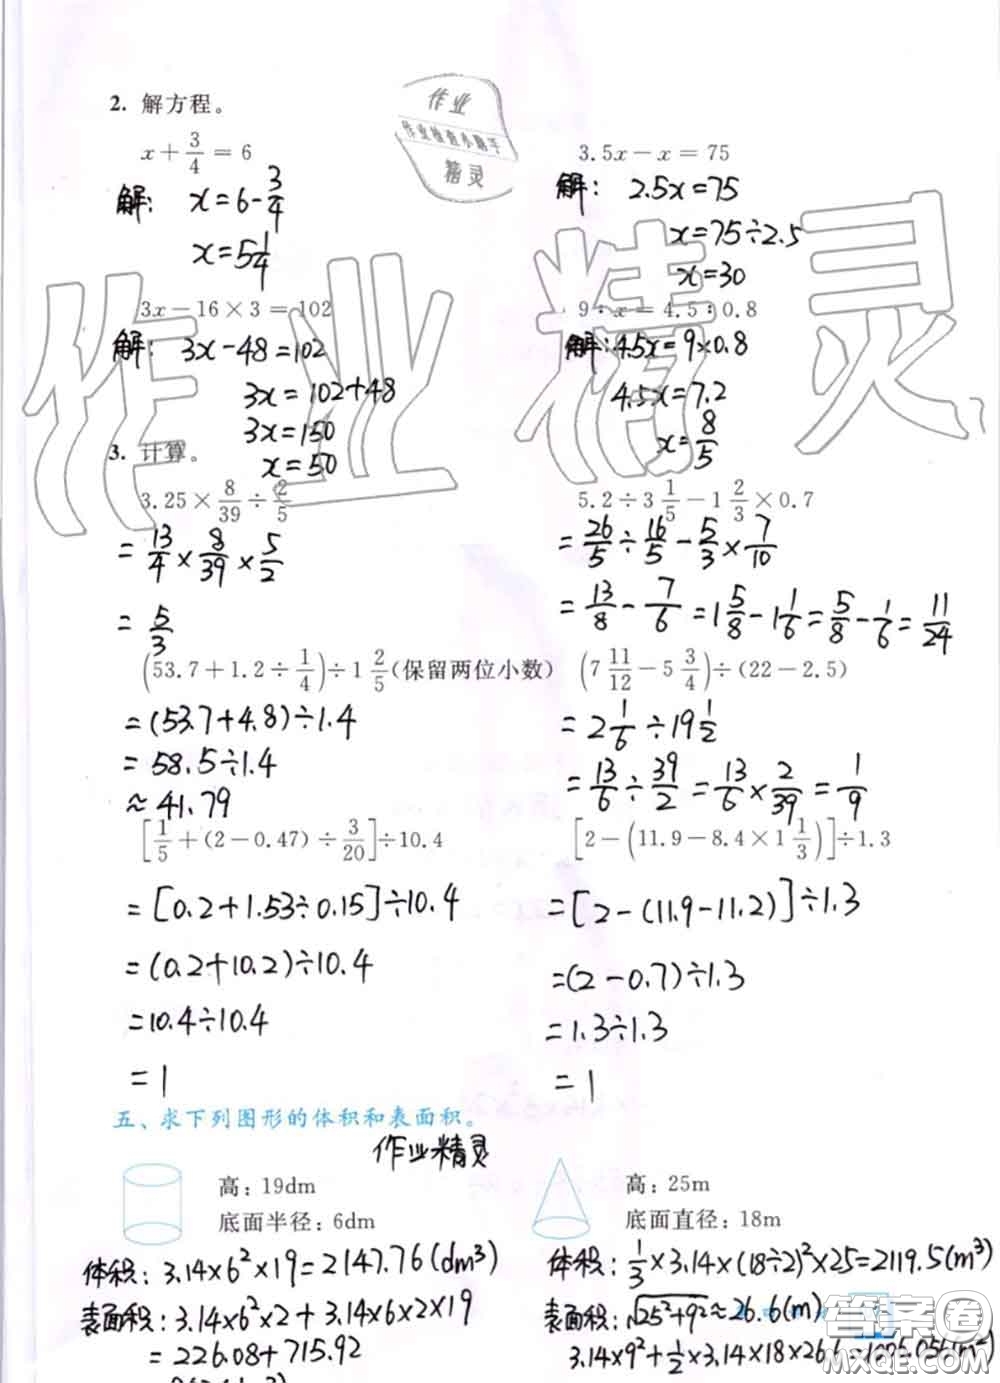 作业
作业检查小助手
精灵
2. 解方程。
x + 3/4 = 6
解: x = 6 - 3/4
x = 5 1/4
3.5x - x = 75
解: 2.5x = 75
x = 75 ÷ 2.5
x = 30
3x - 16 × 3 = 102
解: 3x - 48 = 102
3x = 102 + 48
3x = 150
x = 50
9 : x = 4.5 : 0.8
解: 4.5x = 9 × 0.8
4.5x = 7.2
x = 8/5
作业精灵
3. 计算。
3.25 × 8/39 ÷ 2/5
= 13/4 × 8/39 × 5/2
= 5/3
5.2 ÷ 3 1/5 - 1 2/3 × 0.7
= 26/5 ÷ 16/5 - 5/3 × 7/10
= 13/8 - 7/6 = 1 5/8 - 1 1/6 = 5/8 - 1/6 = 11/24
(53.7 + 1.2 ÷ 1/4) ÷ 1 2/5 (保留两位小数)
= (53.7 + 4.8) ÷ 1.4
= 58.5 ÷ 1.4
≈ 41.79
(7 11/12 - 5 3/4) ÷ (22 - 2.5)
= 2 1/6 ÷ 19 1/2
= 13/6 ÷ 39/2 = 13/6 × 2/39 = 1/9
[1/5 + (2 - 0.47) ÷ 3/20] ÷ 10.4
= [0.2 + 1.53 ÷ 0.15] ÷ 10.4
= (0.2 + 10.2) ÷ 10.4
= 10.4 ÷ 10.4
= 1
[2 - (11.9 - 8.4 × 1 1/3)] ÷ 1.3
= [2 - (11.9 - 11.2)] ÷ 1.3
= (2 - 0.7) ÷ 1.3
= 1.3 ÷ 1.3
= 1
五、求下列图形的体积和表面积。
作业精灵
高: 19dm
底面半径: 6dm
体积: 3.14 × 6² × 19 = 2147.76 (dm³)
表面积: 3.14 × 6² × 2 + 3.14 × 6 × 2 × 19
= 226.08 + 715.92
高: 25m
底面直径: 18m
体积: 1/3 × 3.14 × (18 ÷ 2)² × 25 = 2119.5 (m³)
表面积: √(25² + 9²) ≈ 26.6 (m)
3.14 × 9² + 1/2 × 3.14 × 18 × 26.6
答案圈
MXQE.COM